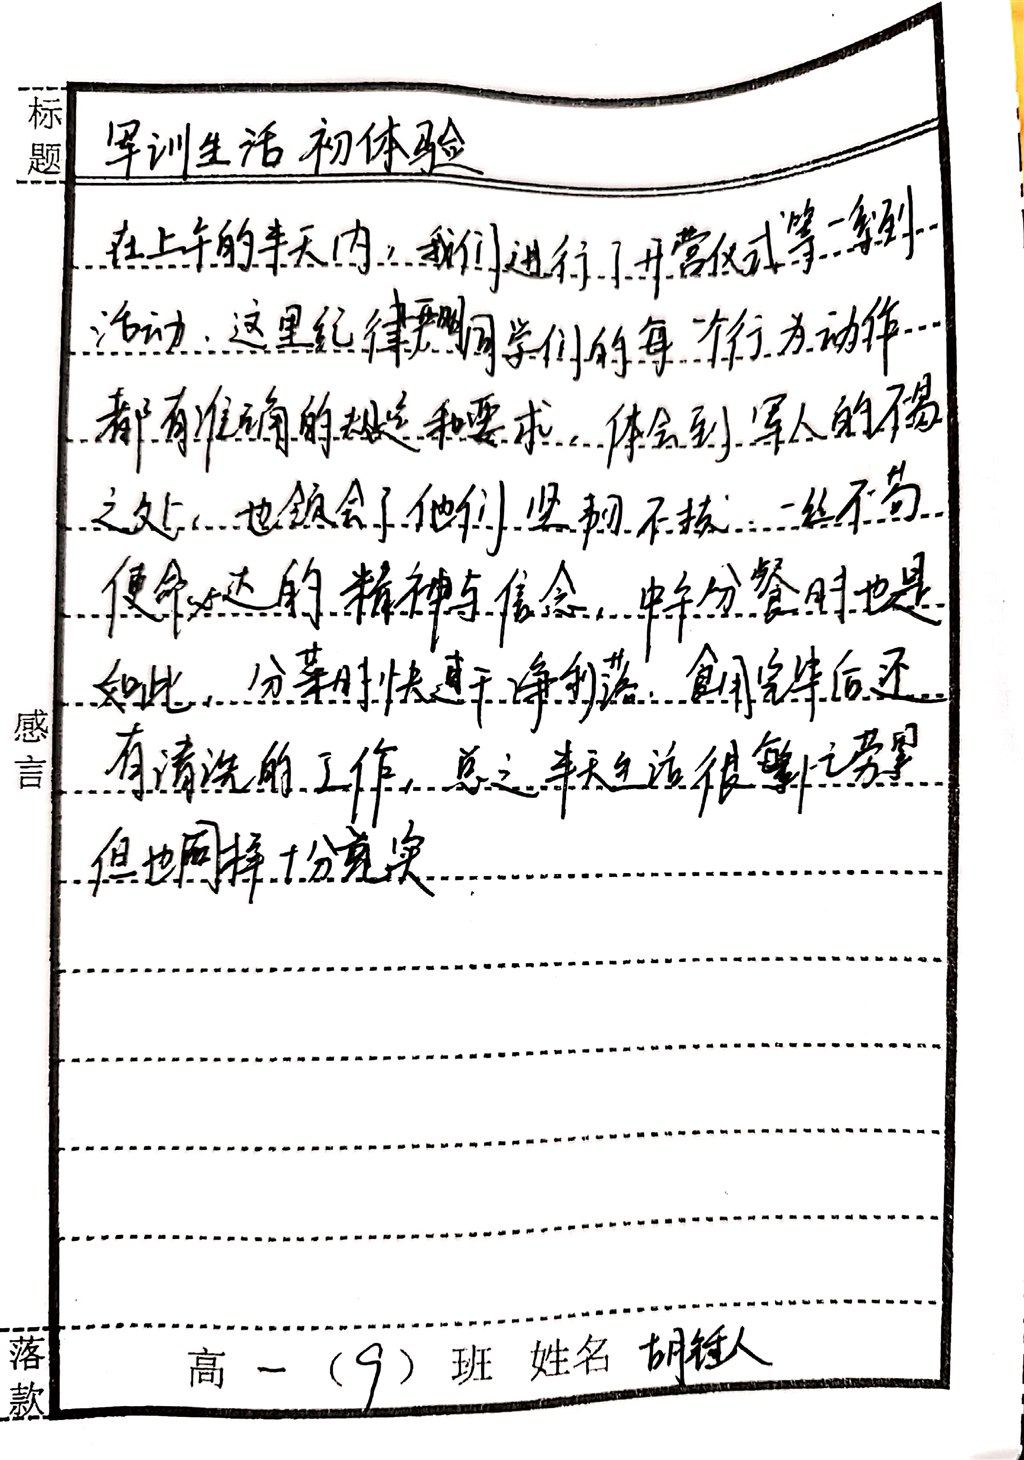 标题
军训生活初体验
在上午的半天内，我们进行了开营仪式等一系列
活动、这里纪律严明同学们的每一个行为动作
都有准确的规定和要求，体会到军人的不易
之处，也领会了他们坚韧不拔、一丝不苟
使命必达的精神与信念，中午分餐时也是
如此，分菜时快速干净利落、食用完毕后还
有清洗的工作，总之半天生活很繁忙劳累
但也同样十分充实
感言
落款
高一（9）班 姓名 胡锺人